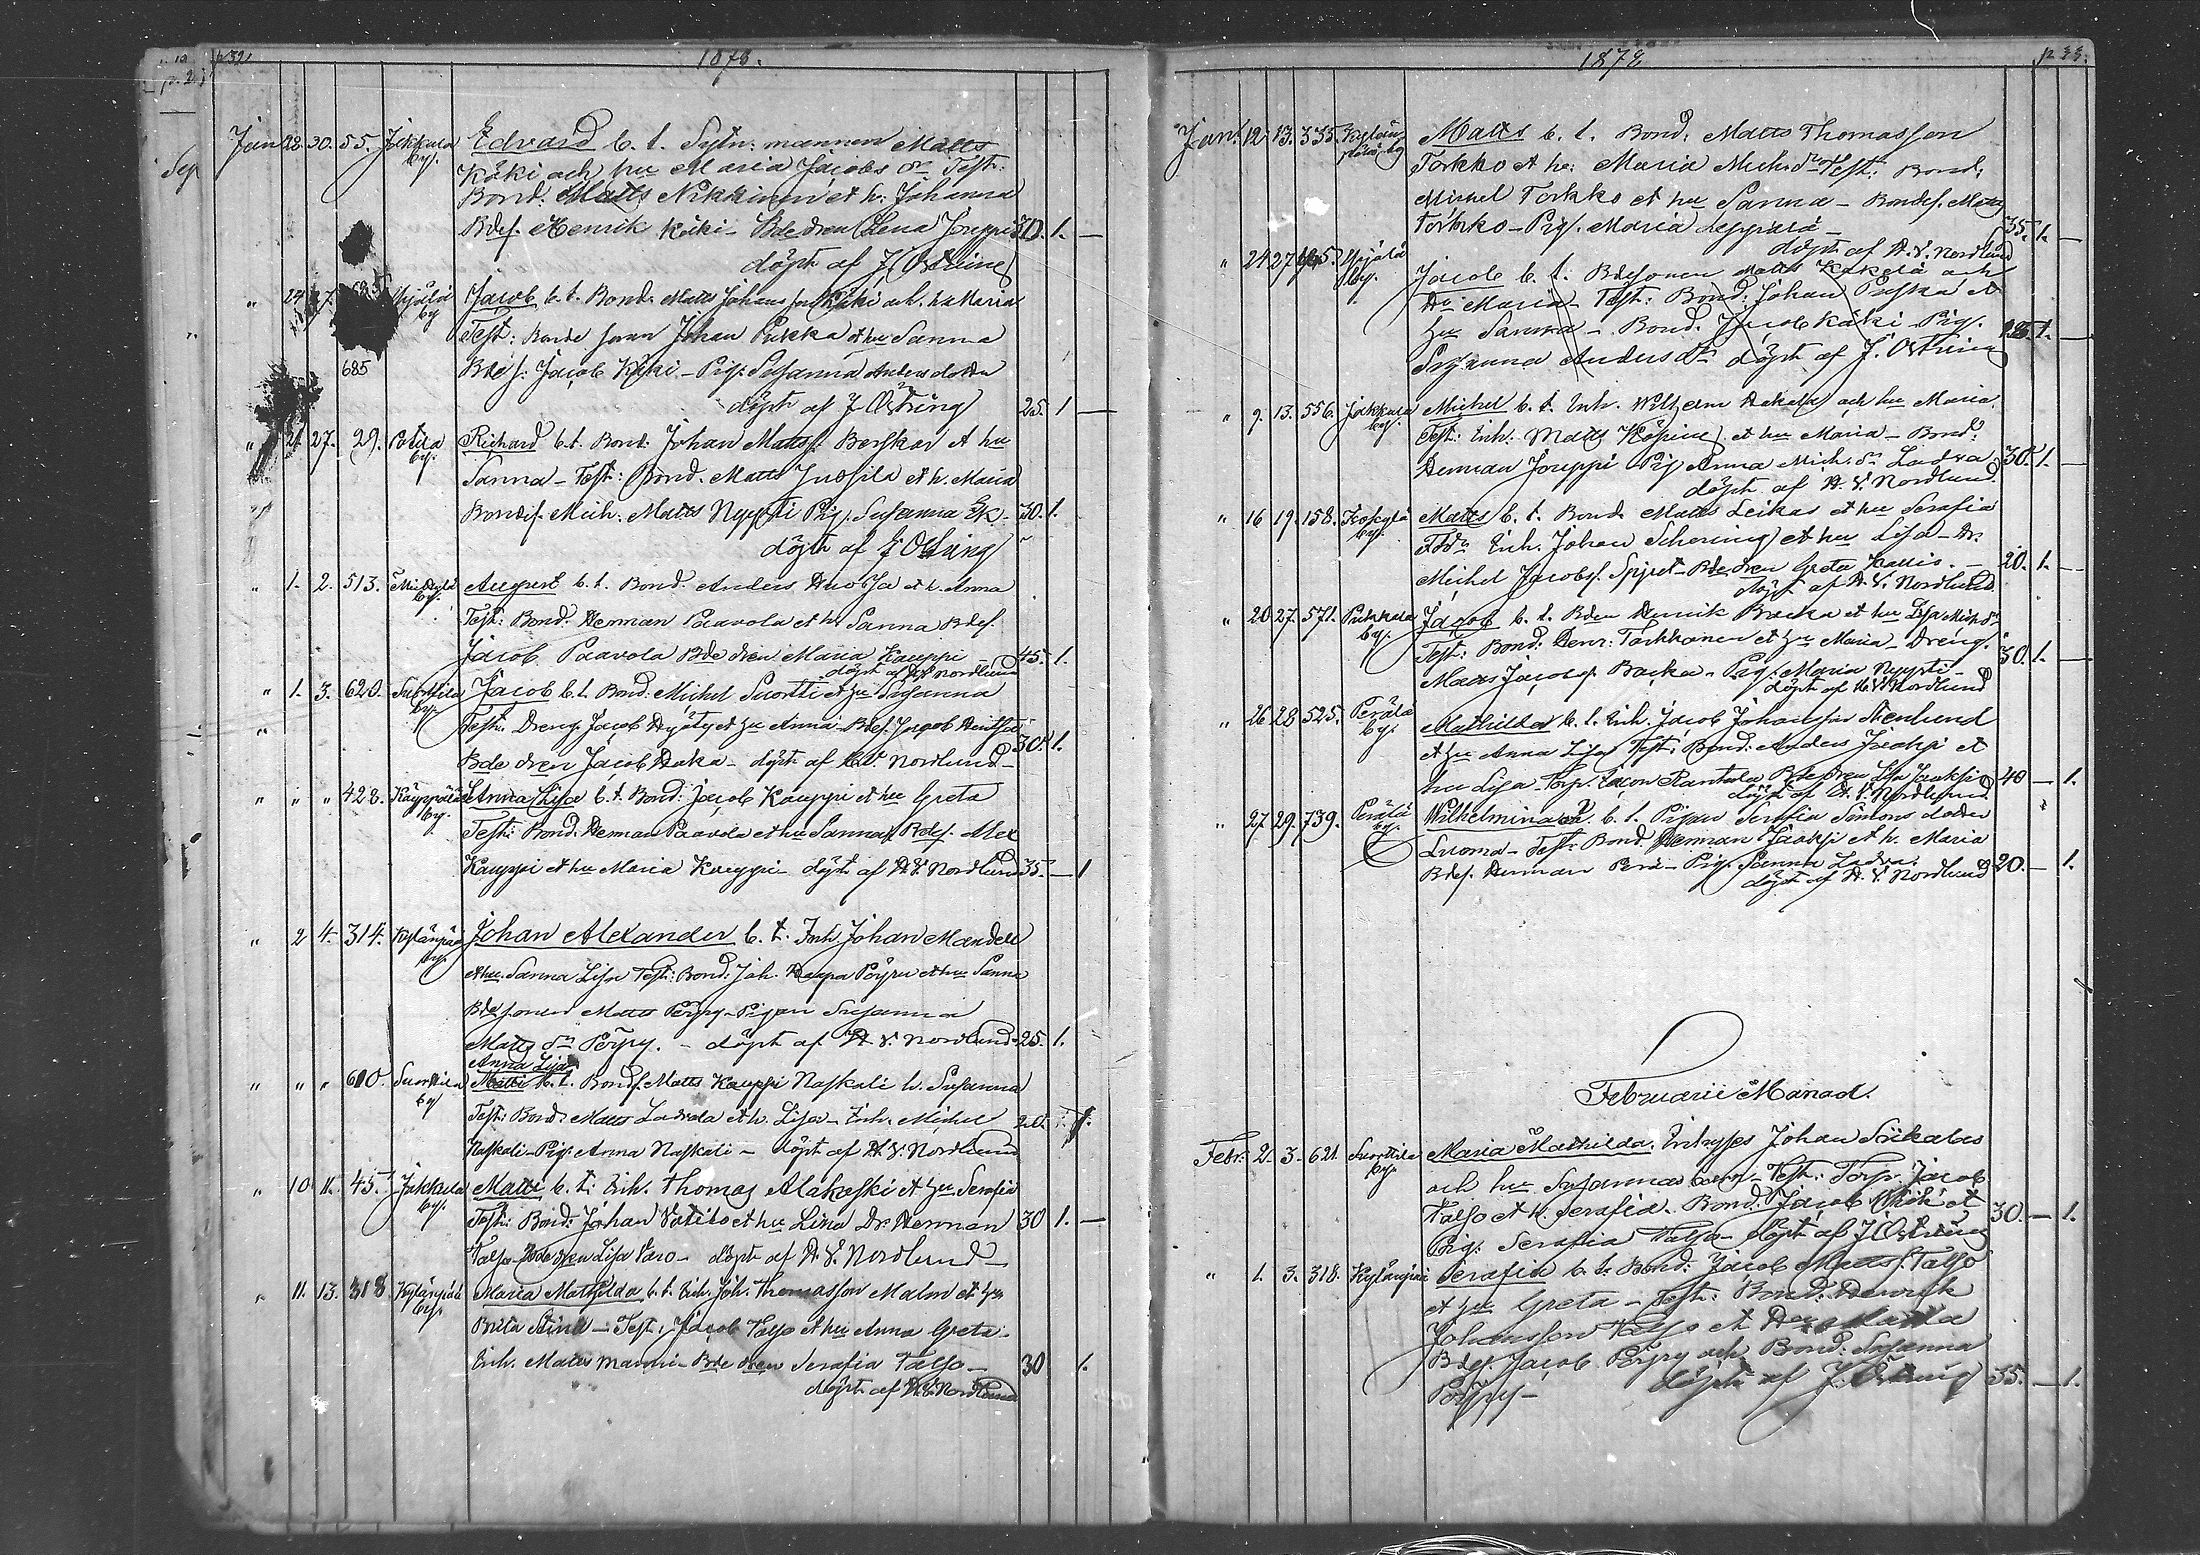 p 32. 1878.
Jan 22. 30. 55. Jåkkula Edvard b. t. Sytn: mannen Matts
by. Käki och hu Maria Jacobs dr Test:
Bond: Matts Nikkinen et h: Johanna
Bdes. Henrik Käki - Bde dren Lena Jouppi 30. 1. —
döpt af J Östring
" 24 27. Ypjälä Jacob b. t. Bond. Matts Johans son Käki och hu Maria
by Test: Bonde sonen Johan Pukka et hu Sanna
685 Bdes: Jacob Käki - Pig: Susanna Anders dotter
döpt af J Östring 25. 1 —
" 21. 27. 29. Potila Richard b. t. Bond: Johan Matts s. Berskar et hu
by. Sanna - Test: Bond. Matts Jussila et h. Maria
Bondes. Mich. Matts Nyysti Pig. Susanna Ek - 30. 1.
döpt af J Östring
" 1. 2. 513. August b. t. Bond. Anders Huo et h. Anna
by. Test: Bond. Herman Paavola et h Sanna Bdes.
Jacob Paavola Bde dren Maria Kauppi - 45. 1.
döpt af H V Nordlund
" 1. 3. 620. Suorttila Jacob b. t. Bond: Michel Suortti et hu Susanna
by. Test: Dreng Jacob Hyöty et hu Anna - Bdes. Jacob
Bde dren Jacob Haka - döpt af H V. Nordlund - 30. 1.
" " " 428. Kauppila Anna Lisa b. t. Bond: Jacob Kauppi et hu Greta
by. Test: Bond. Herman Paavola et hu Sanna Bdes. Alex
Kauppi et hu Maria Kauppi - döpt af H. V. Nordlund 35. — 1
" 2 4. 314. Kylänpää Johan Alexander b. t. Inh Johan Mandell
by. et hu. Sanna Lisa Test: Bond. Joh. Pöyry et hu Sanna
Bde sonen Matts Pöyry - Pigan Susanna
Matts dr Pöyry. - döpt af H V. Nordlund - 25. 1.
Anna Lisa
" " " 610. Suorttila Matti b. t. Bonds. Matts Kauppi Naskali h. Susanna
by Test: Bond. Matts Ladvala et h. Lisa - Inh. Michel 20. 1.
Naskali - Pig. Anna Naskali - döpt af H. V. Nordlund
" 10. 11. 45. Jåkkula Matti b. t. Inh. Thomas Alakoski et hu Serafia
by. Test: Bond: Johan et hu Lisa Dr. Herman 30 1. —
Talso - Bde dren Lisa Varo - döpt af H. V. Nordlund -
" 11. 13. 318 Kylänpää Maria Mathilda b. t. Inh. Joh. Thomasson Malm et hu
by. Brita Stina - Test: Jacob Talso et hu Anna Greta -
Inh. Matts Manni - Bde dren Serafia Talso - 30 1.
döpt af H. V. Nordlund
1878 p 33.
Jan. 12. 13. 335. Kylän- Matts b. t. Bond: Matts Thomasson
pää by Torkko et hu: Maria Mich. dr Test: Bond.
Michel Torkko et hu Sanna - Bondes. Matts
Torkko - Pig. Maria Leppälä - 35. 1. —
döpt af H. V. Nordlund
" 24 27 Ypjälä Jacob b. t. Bdesonen Matts och
by. Hu Maria - Test: Bond: Johan Puska et
hu Sanna - Bond. Jacob Käki - Pig.
Susanna Anders dr döpt af J. Östring 25 1. —
" 9. 13. 556. Jåkkula Michel b. t. Inh. Wilhelm och hu Maria.
by. Test: Inh. Matts et hu Maria - Bond:
Herman Jouppi Pig Anna Mich. dr Ladva 30. 1. —
döpt af H. V. Nordlund.
" 16 19. 158. Matts b. t. Bond. Matts Leikas et hu Serafia
by. Inh. Johan Schering et hu Lisa - Dr.
Michel Jacobs. Spjut - Bde dren Greta - 20. 1. —
döpt af H. V. Nordlund
" 20 27. 571. Pukkala Jacob b. t. Bden Henrik Backa et hu Lisa Mich dr
by. Test: Bond: Henr: Tarkkanen et hu Maria - Dreng.
Matts Jacobs. Backa - Pig. Maria Nyysti - 30. 1. —
döpt af H V Nordlund
" 26 28 525. Perälä Mathilda b. t. Inh. Jacob Johansson Stenlund
by. et hu Anna Lisa Test: Bond: Anders Jaakop et
hu Lisa - Torp. Rantala Bde dren Lisa Jaakop 40 — 1.
döpt af H. V. Nordlund
" 27 29. 739. Perälä Wilhelmina b. t. Pigan Serafia Simons dotter
by. Luoma - Test: Bond. Herman Jaakop et h. Maria
Bdes. Herman Perä - Pig. Sanna Ladva. 20. — 1.
döpt af H. V. Nordlund
Februarii Månad.
Febr. 2. 3. 621. Suorttila Maria Mathilda. Johan Siikalas
by. och hu Susannas barn - Test: Torp: Jacob
Talso et h. Serafia. Bond: Jacob et 30. — 1.
Pig. Serafia Talso - döpt af J Östring
" 1. 3. 318. Kylänpää Serafia b. t. Bond. Jacob Matts s. Talso
et hu Greta - Test: Bond: Henrik
Johansson Talso et Hu Maria
Bdes. Jacob Pöyry och Bond: Susanna
Pöyry - döpt af J. Östring 35. — 1.